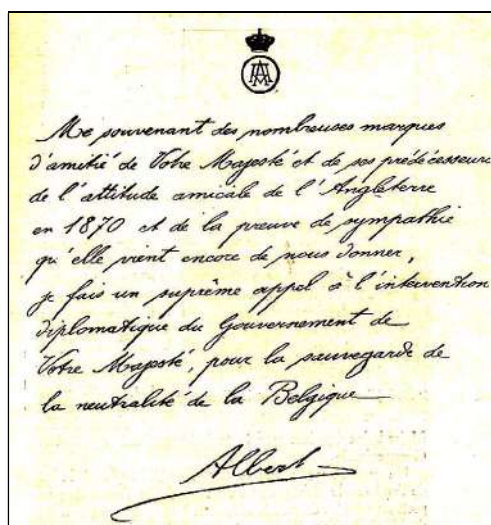 Me souvenant des nombreuses marques
d'amitié de Votre Majesté et de ses prédécesseurs
de l'attitude amicale de l'Angleterre
en 1870 et de la preuve de sympathie
qu'elle vient encore de nous donner,
je fais un suprême appel à l'intervention
diplomatique du Gouvernement de
Votre Majesté, pour la sauvegarde de
la neutralité de la Belgique
Albert